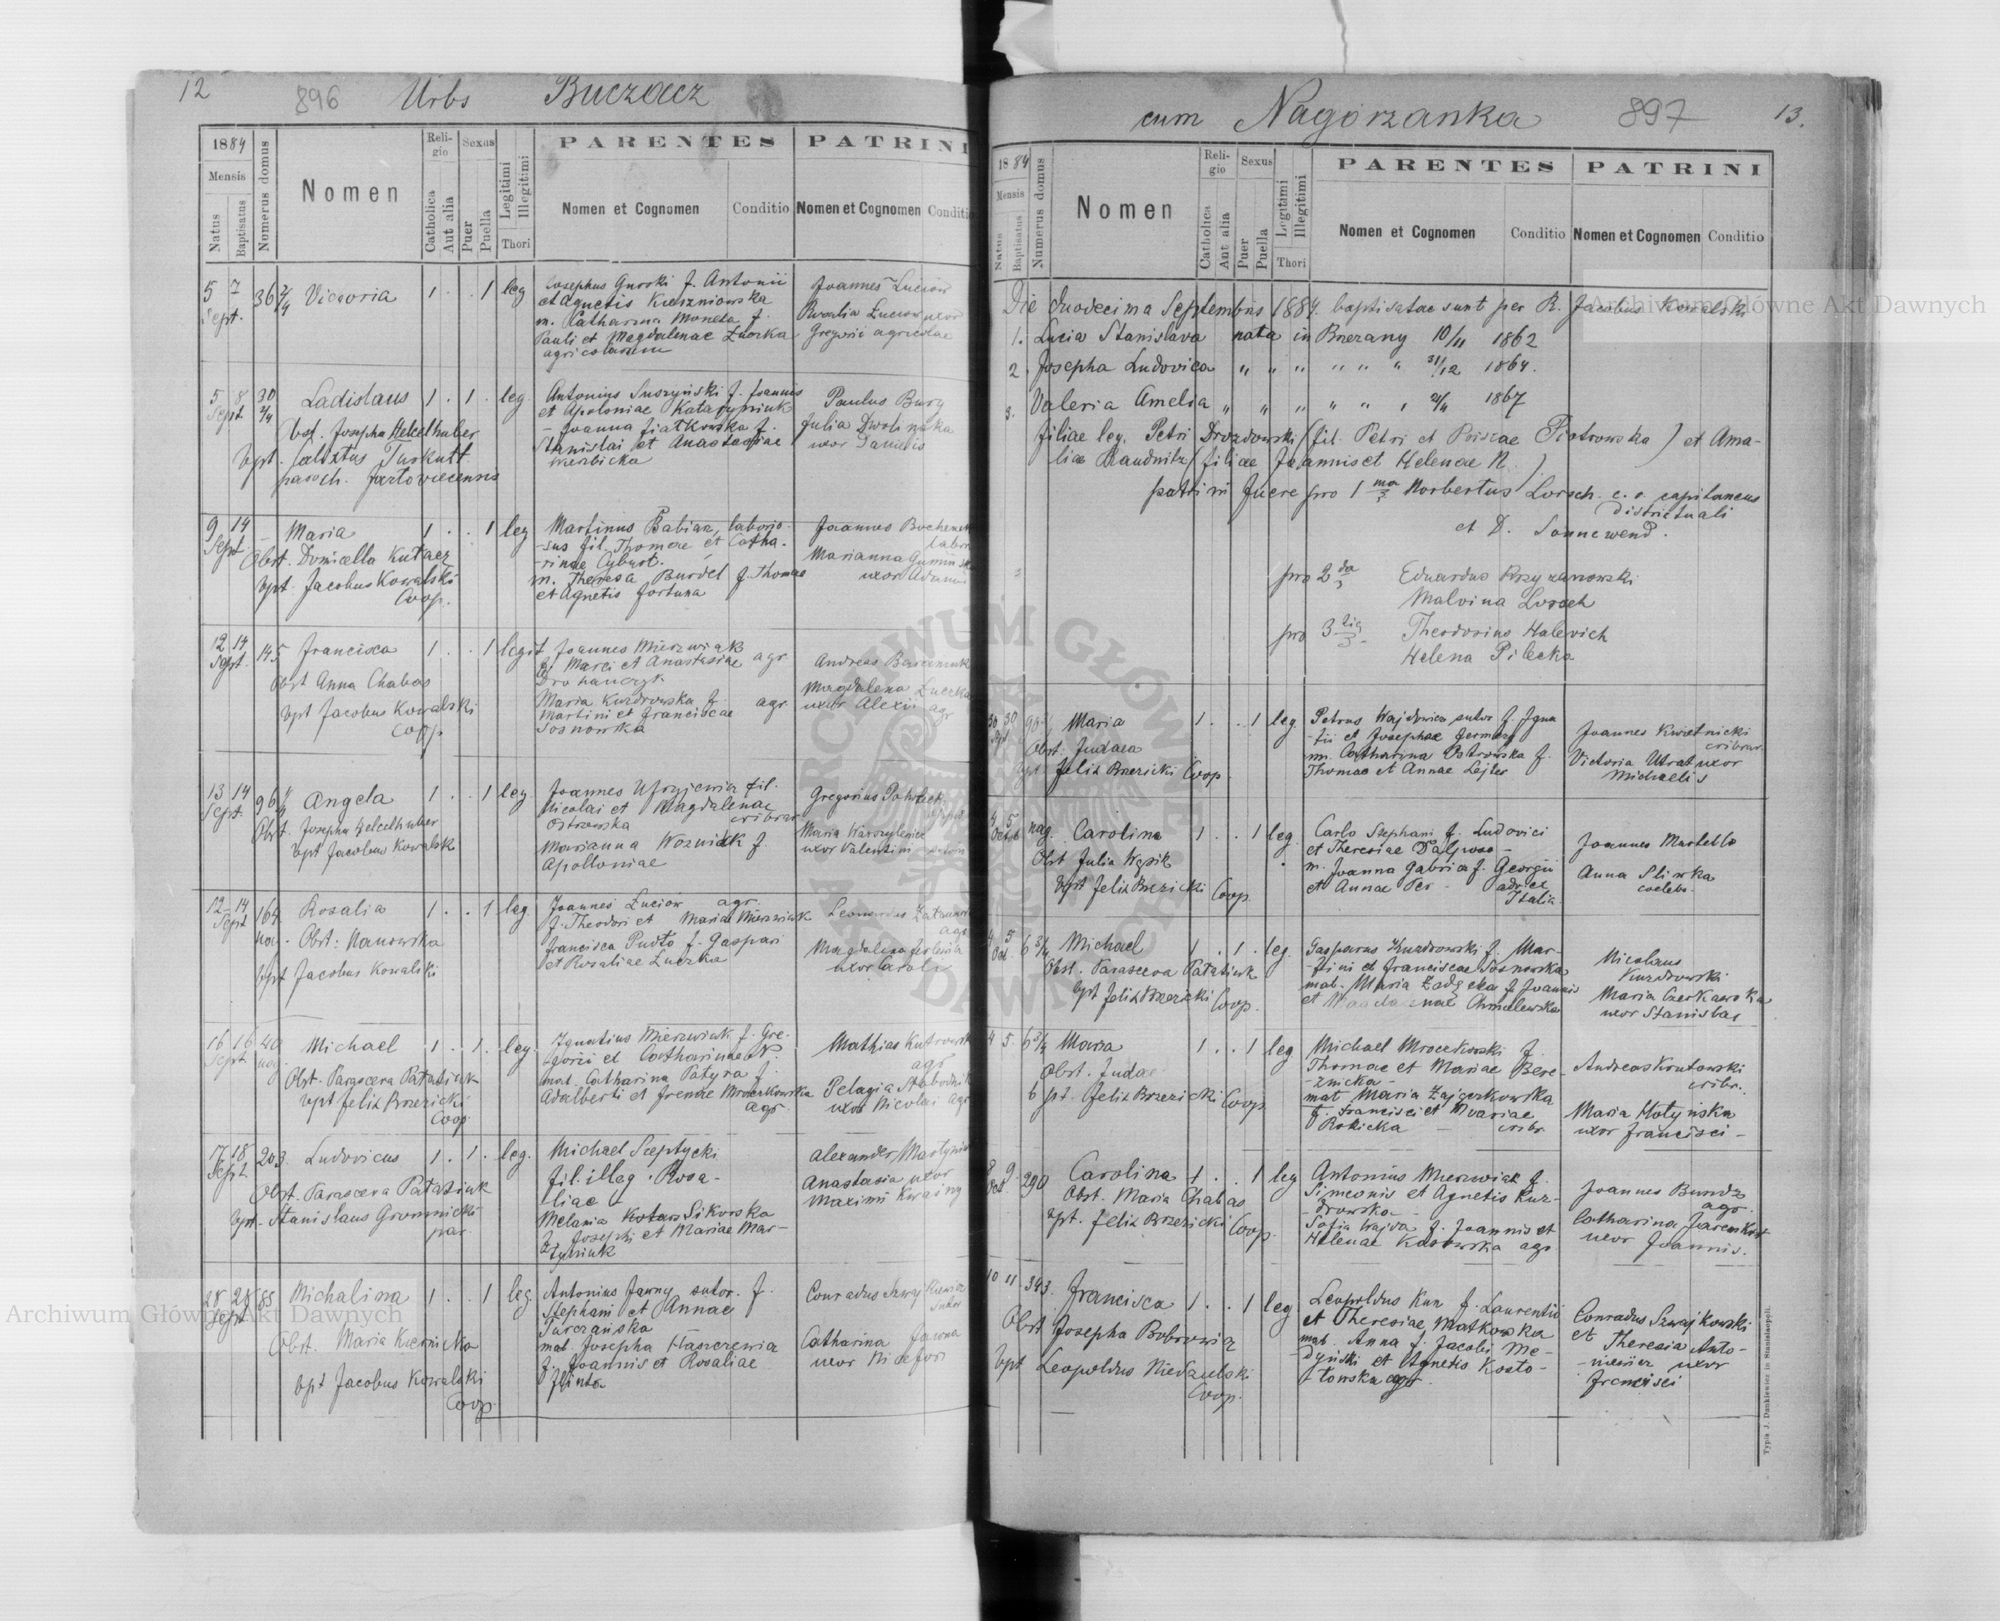 12
896 Urbs Buczacz
1884
Mensis
Natus
Baptisatus
Numerus domus
Nomen
Religio
Catholica
Aut alia
Sexus
Puer
Puella
Legitimi
Illegitimi
Thori
PARENTES
Nomen et Cognomen
Conditio
PATRINI
Nomen et Cognomen
Conditio
5 7 Sept. 36 2/4 Victoria 1 . . 1 leg
Josephus Gurski f. Antonii
et Agnetis Kuszniowska
m. Catharina Moneta f.
Pauli et Magdalenae
agricolarum
Joannes Luciow
Rosalia Luciow uxor
Gregorii agricolae
5 8 Sept 30 2/4 Ladislaus 1 . 1 . leg
Obst. Josepha Hekelhuber
bpt. Turkutt
paroch. Jazlowiecensis
Antonius Suszyński f. Joannis
et Apoloniae
Joanna Fiatkowska f.
Stanislai et Anastasiae
Wierbicka
Paulus Bury
Julia
uxor Danielis
9 14 Sept. Maria 1 . . 1 leg
Obst. Domicella Kutacz
bpt. Jacobus Kowalski
Coop.
Martinus Babiar, laborio-
sus fil. Thomae et Catha-
rinae Cybart.
m. Theresa Burdel f. Thomae
et Agnetis Fortuna
Joannes
Marianna
uxor Adami
12 14 Sept. 145 Francisca 1 . . 1 legit
Obst Anna Chabas
bpt Jacobus Kowalski
Coop
Joannes Mierzwiak
f. Marci et Anastasiae agr
Drohanczyk
Maria Kuzdrowska f. agr
Martini et Franciscae
Sosnowska
Andreas
Magdalena Luczka
uxor Alexii agr
13 14 Sept. 96 Angela 1 . . 1 leg
Obst. Josepha Hekelhuber
bpt Jacobus Kowalsk
Joannes fil.
Nicolai et Magdalenae
Ostrowska cribrar
Marianna Wozniak f.
Apolloniae
Gregorius
Maria
uxor Valentini
12 14 Sept 164 Rosalia 1 . . 1 leg.
Obst: Nanowska
bpt Jacobus Kowalski
Joannes Luciow agr.
f. Theodori et Mariae Mierzwiak
Francisca Pudło f. Gaspari
et Rosaliae Luczka
Leonardus
agr
Magdalena
uxor Caroli
16 16 Sept 40 nag Michael 1 . 1 . leg.
Obst. Parasceva Patatiuk
bpt Felix Brzezicki
Coop
Ignatius Mierzwiak f. Gre-
gorii et Catharinae N.
mat. Catharina Patyra f.
Adalberti et Irenae Mroczkowska
agr.
Mathias
agr
Pelagia
uxor Nicolai agr
17 18 Sept. 203 Ludovicus 1 . 1 . leg.
Obst. Parasceva Patatiuk
bpt. Stanislaus Gromnicki
par
Michael Szeptycki
fil. illeg. Rosa-
liae -
Melania Sikorska
f. Josephi et Mariae Mar-
tyniuk
Alexander
Anastasia uxor
Maximi
28 28 Sept 88 Michalina 1 . . 1 leg.
Obst. Maria
bpt Jacobus Kowalski
Coop
Antonius Jawny sutor. f.
Stephani et Annae
Turczańska
mat. Josepha
f. Joannis et Rosaliae
Conradus
sutor
Catharina Jawna
uxor Nicefori
cum Nagorzanka 897 13.
1884
Mensis
Natus
Baptisatus
Numerus domus
Nomen
Religio
Catholica
Aut alia
Sexus
Puer
Puella
Legitimi
Illegitimi
Thori
PARENTES
Nomen et Cognomen
Conditio
PATRINI
Nomen et Cognomen
Conditio
Die duodecima Septembris 1884. baptisatae sunt per R. Jacobus Kowalski
1. Lucia Stanislava nata in Brzezany 10/11 1862
2. Josepha Ludovica " " " " " " 31/12 1864.
3. Valeria Amelia " " " " " " 1867
filiae leg. Petri Drozdowski (fil. Petri et Piotrowska) et Ama-
liae Raudnitz (filiae Joannis et Helenae N.)
patrini fuere pro 1ma Norbertus Lorsch. c. r. capitaneus
districtuali
et D. Sonnewend.
pro 2da Eduardus Krzyzanowski
Malvina Lorsch
pro 3tia Theodosius Halevich
Helena Pilecka
30 30 Sept Maria 1 . . 1 leg.
Obst. Judaea
bpt Felix Brzezicki Coop
Petrus Wajdowicz sutor f. Igna
tii et Josephae
m. Catharina Ostrowska f.
Thomae et Annae Lejter
Joannes Kwietnicki
cribrar.
Victoria Utrat uxor
Michaelis
4 5 Octob nag. Carolina 1 . . 1 leg.
Obst Julia Wąsik
bpt Felix Brzezicki Coop.
Carlo Stephani f. Ludovici
et Theresiae Dalprosa -
m. Joanna Gabria f. Georgii
et Annae Per - adv. ex
Italia
Joannes Martello
Anna Sliwka
coelebs.
4 5 Oct. 6 3/4 Michael 1 . 1 . leg.
Obst. Parasceva Patatiuk
bpt Felix Brzezicki Coop.
Gasparus Kuzdrowski f. Mar-
tini et Franciscae Sosnowska
mat. Maria f. Joannis
et Magdalenae Chmielewska
Nicolaus
Kuzdrowski
Maria Czerkawska
uxor Stanislai
4 5. 6 3/4 Maria 1 . . 1 leg
Obst. Judae
bpt. Felix Brzezicki Coop
Michael Mroczkowski f.
Thomae et Mariae Bere-
znicka -
mat Maria Zajączkowska
f. Francisci et Mariae
Rokicka - cribr.
Andreas Krutowski
cribr.
Maria Hołyńska
uxor Francisci -
8 9 Oct 290 Carolina 1 . . 1 leg
Obst. Maria Chabas
bpt. Felix Brzezicki Coop.
Antonius Mierzwiak f.
Simeonis et Agnetis Kuz-
drowska -
Sofia Wajda f. Joannis et
Helenae Kosowska agr
Joannes Bundz
agr.
Catharina
uxor Joannis.
10 11. 343. Francisca 1 . . 1 leg
Obst Josepha Bobrowicz
bpt Leopoldus Niedzielski
Coop.
Leopoldus Kun f. Laurentii
et Theresiae Matkowska
mat. Anna f. Jacobi Me-
dyński et Agnetis Kosto-
towska agr.
Conradus Szwajkowski
et Theresia Anto-
uxor
Francisci
Typis J. Dankiewicz in Stanislaopoli.
Archiwum Główne Akt Dawnych
Archiwum Główne Akt Dawnych
ARCHIWUM GŁÓWNE AKT DAWNYCH